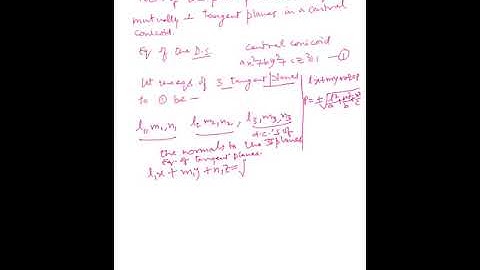 mutually ⊥ Tangent planes in a central
conicoid.
Eq of the D.S. central conicoid
ax²+by²+cz²=1 —①
Let the eqs of 3 tangent planes
to ① be — lx+my+nz=p
p=±√(l²/a+m²/b+n²/c)
l₁,m₁,n₁ l₂ m₂,n₂, l₃,m₃,n₃
d.c.'s of
the normals to the 3 planes
Eq. of tangent planes.
l₁x + m₁y + n₁z = √